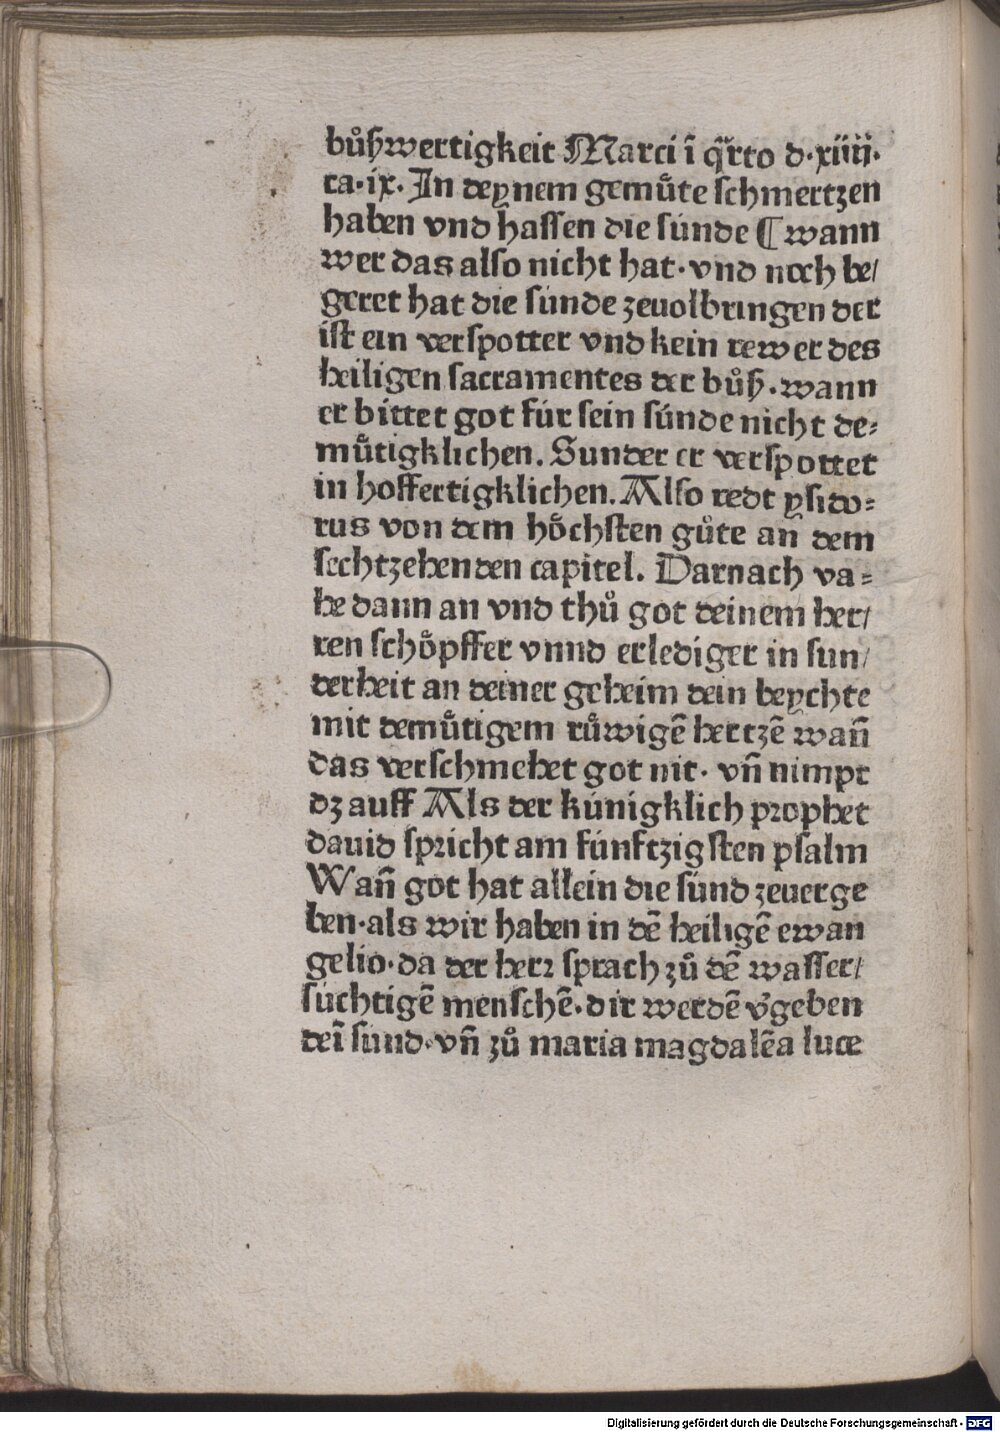 bůßwertigkeit Marci ī q̄rto d·xiiii·
ca·ix· In deynem gemůte schmertzen
haben vnd hassen die súnde ¶ wann
wer das also nicht hat· vnd noch be/
geret hat die súnde zeuolbringen der
ist ein verspotter vnd kein rewer des
heiligen sacramentes der bůß · wann
er bittet got fúr sein súnde nicht de⸗
mu̇tigklichen. Sunder er verspottet
in hoffertigklichen. Also redt ysido⸗
rus von dem hoͤchsten gůte an dem
sechtzehenden capitel. Darnach va⸗
he dann an vnd thů got deinem her/
ren schoͤpffer vnnd erlediger in sun/
derheit an deiner geheim dein beychte
mit demůtigem růwigē hertzē wan̄
das verschmehet got nit· vn̄ nimpt
dz auff Als der kúnigklich prophet
dauid spricht am fúnftzigsten psalm
Wan̄ got hat allein die súnd zeuerge
ben·als wir haben in dē heiligē ewan
gelio·da der herꝛ sprach zů dē wasser/
súchtigē menschē·dir werdē v̓geben
deī súnd·vn̄ zů maria magdalēa luce
Digitalisierung gefördert durch die Deutsche Forschungsgemeinschaft - DFG